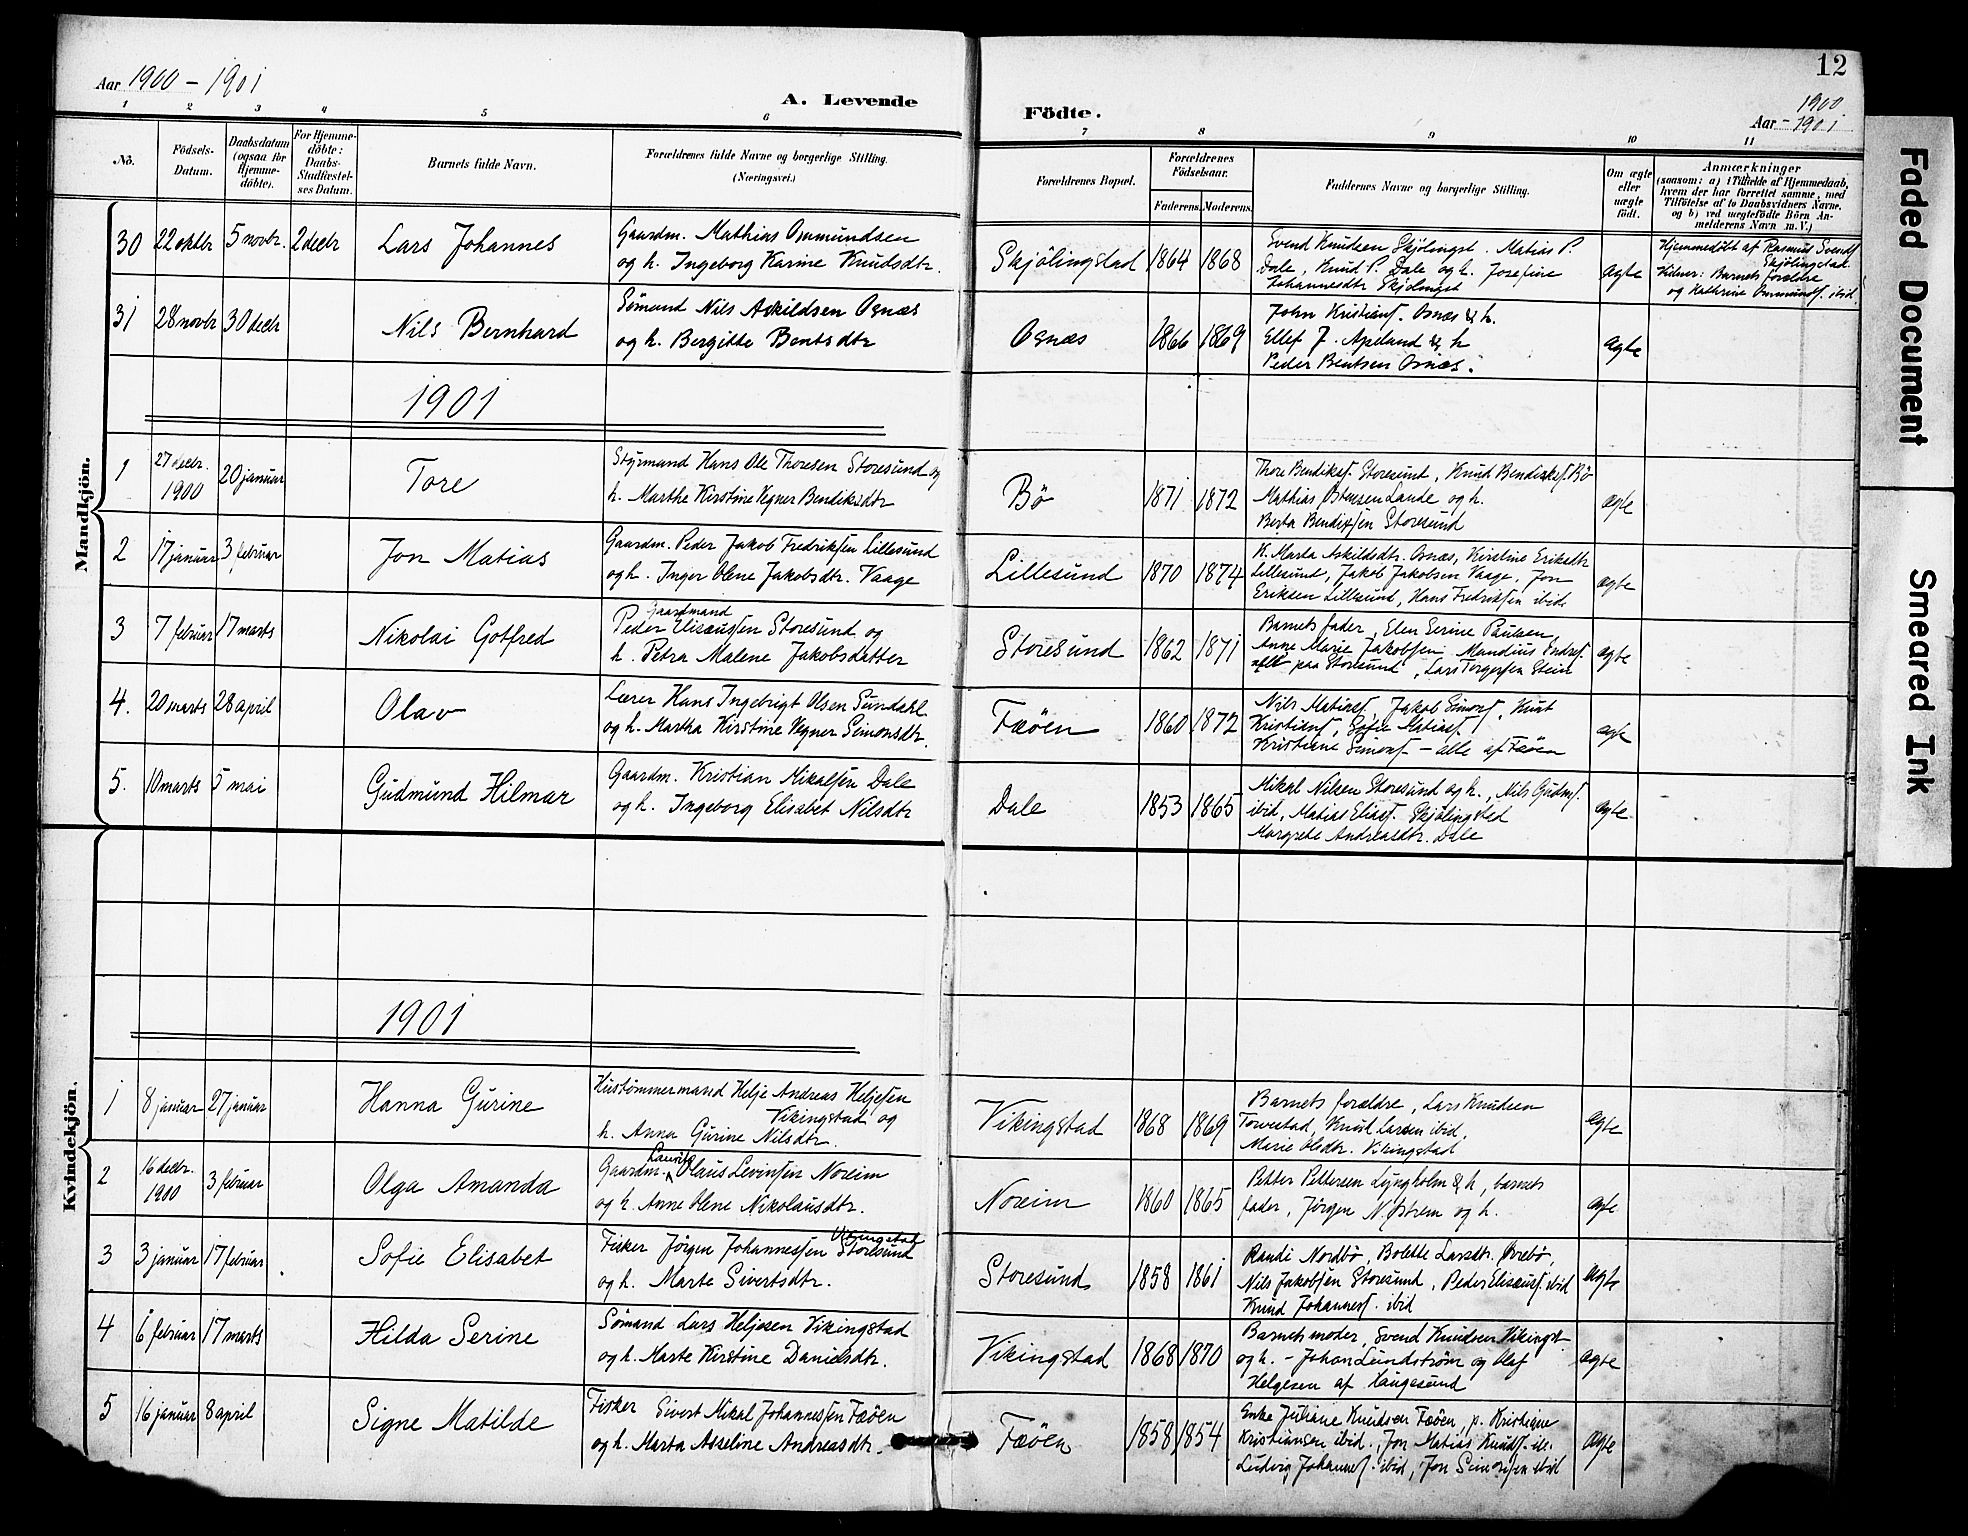 Aar 1900 - 1901
A. Levende
Födte.
12
1900
Aar - 1901
1 2 3 4 5 6 7 8 9 10 11
No.
Födsels-
Datum.
Daabsdatum
(ogsaa för
Hjemme-
döbte).
For Hjemme-
döbte:
Daabs-
Stadfæstel-
ses Datum.
Barnets fulde Navn.
Forældrenes fulde Navne og borgerlige Stilling.
(Næringsvei.)
Forældrenes Bopæl.
Forældrenes
Födselsaar.
Faderens. Moderens.
Faddernes Navne og borgerlige Stilling.
Om ægte
eller
uægte
födt.
Anmærkninger
(saasom: a) i Tilfælde af Hjemmedaab,
hvem der har forrettet samme, med
Tilföielse af to Daabsvidners Navne,
og b) ved uægtefödte Börn An-
melderens Navn m. V.)
Mandkjön.
30 22 oktbr 5 novbr. 2 decbr Lars Johannes
Gaardm. Mathias Ommundsen
og h. Ingeborg Karine Knudsdtr.
Skjölingstad 1864 1868
Svend Knudsen Skjölingst. Matias P.
Dale, Knud P. Dale og h. Josefine
Johannesdtr Skjolingst
ægte
Hjemmedöbt af Rasmus Svends
Skjölingstad.
Vidner: Barnets forældre
og Kathrine Ommunds. ibid.
31 28 novbr 30 decbr Nils Bernhard
Sömand Nils Askildsen Osnæs
og h. Bergitte Bentsdtr
Osnæs 1866 1869
John Kristians. Osnæs & h.
Ellef J. Apeland & h
Peder Bentsen Osnæs.
ægte
1901
1 27 decbr. 1900 20 januar Tore
Styrmand Hans Ole Thoresen Storesund og
h. Marthe Kirstine Vegner Bendiksdtr
Bö 1871 1872
Thore Bendiks. Storesund, Knud Bendiks. Bö
Mathias Lande og h.
Berta Bendixsen Storesund
ægte
2 17 januar 3 februar Jon Matias
Gaardm. Peder Jakob Fredriksen Lillesund
og h. Inger Olene Jakobsdtr. Vaage
Lillesund 1870 1874
K. Marta Askildsdtr. Osnæs, Kirstine Eriksdtr
Lillesund, Jakob Jakobsen Vaage, Jon
Eriksen Lillesund, Hans Fredriksen ibid.
ægte
3 7 februar 17 marts Nikolai Gotfred
Gaardmand
Peder Elisæussen Storesund og
h. Petra Malene Jakobsdatter
Storesund 1862 1871
Barnets fader, Elen Serine Paulsen,
Anne Marie Jakobsen, Mandius Endres.
alle paa Storesund, Lars Torgersen Stein
ægte
4. 20 marts 28 april Olav
Lærer Hans Ingebrigt Olsen Sundahl
og h. Martha Kirstine Vegner Simonsdtr.
Fæöen 1860 1872
Nils Matias., Jakob Simons., Knut
Kristians., Sofie Matias.
Kristiane Simons. – alle af Fæöen
ægte
5. 10 marts 5 mai Gudmund Hilmar
Gaardm. Kristian Mikalsen Dale
og h. Ingeborg Elisabet Nilsdtr
Dale 1853 1865
Mikal Nilsen Storesund og h., Nils Gudms.
ibid, Matias Elias. Skjölingstad
Margrete Andreasdtr. Dale
ægte
Kvindekjön.
1901
1 8 januar 27 januar Hanna Gurine
Hustömmermand Helje Andreas Heljesen
Vikingstad og
h. Anna Gurine Nilsdtr.
Vikingstad 1868 1869
Barnets forældre, Lars Knudsen
Torvestad, Knud Larsen ibid,
Marie Olsdtr. Vikingstad
ægte
2 16 decbr. 1900 3 februar Olga Amanda
Laurits
Gaardm. Olaus Levinsen Noreim
og h. Anne Olene Nikolausdtr.
Noreim 1860 1865
Petter Pettersen Lyngholm & h, barnets
fader, Jörgen N. Östrem og h.
ægte
3 3 januar 17 februar Sofie Elisabet
Vikingstad
Fisker Jörgen Johannessen Storesund
og h. Marte Sivertsdtr.
Storesund 1858 1861
Randi Nordbö, Bolette Larsdtr. Övrebö,
Nils Jakobsen Storesund, Peder Elisæus. ibid
Knud Johannes. ibid
ægte
4 6 februar 17 marts Hilda Serine
Sömand Lars Heljesen Vikingstad
og h. Marte Kirstine Danielsdtr.
Vikingstad 1868 1870
Barnets moder, Svend Knudsen Vikingst.
og h. – Johan Lundström og Olaf
Helgesen af Haugesund
ægte
5 16 januar 8 april Signe Matilde
Fisker Sivert Mikal Johannesen Fæöen
og h. Marta Asseline Andreasdtr.
Fæöen 1858 1854
Enke Juliane Knudsen Fæöen, p. Kristiane
Kristiansen ibid., Jon Matias Knuds. ib.
Ludvig Johannes. ibid, Jon Simonsen ibid
ægte
Faded Document
Smeared Ink